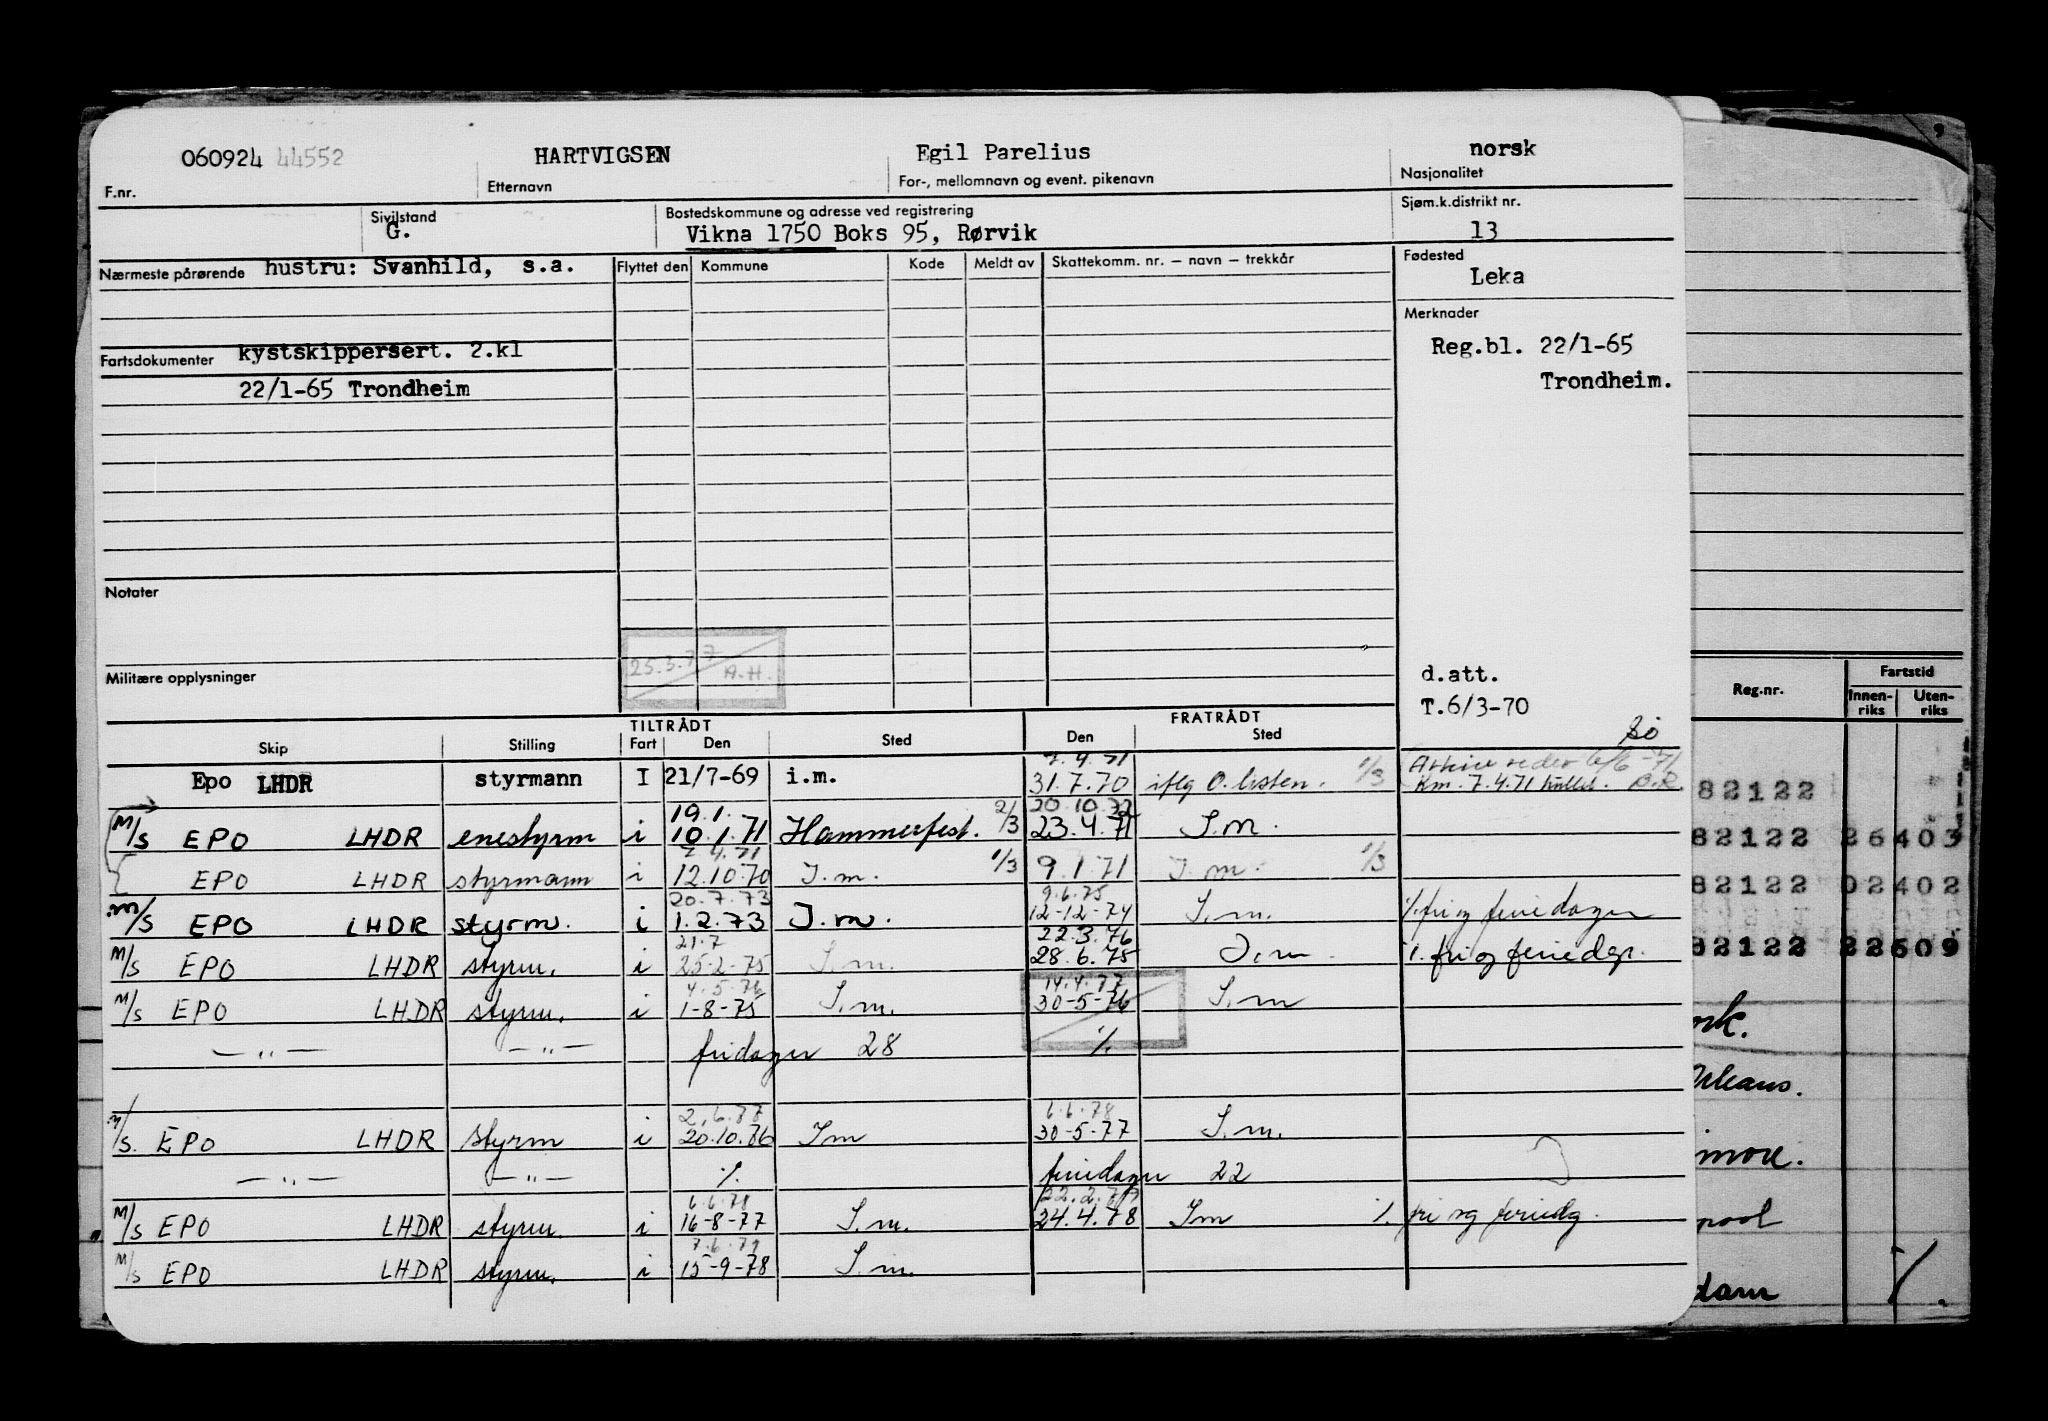 060924 44552 HARTVIGSEN Egil Parelius norsk
F.nr. Etternavn For-, mellomnavn og event. pikenavn Nasjonalitet
Sivilstand Bostedskommune og adresse ved registrering Sjøm.k.distrikt nr.
G. Vikna 1750 Boks 95, Rørvik 13
Nærmeste pårørende hustru: Svanhild, s.a. Flyttet den Kommune Kode Meldt av Skattekomm. nr. – navn – trekkår Fødested
Leka
Merknader
Fartsdokumenter kystskippersert. 2.kl Reg.bl. 22/1-65
22/1-65 Trondheim Trondheim.
Notater
25.3.77 A.H.
Militære opplysninger d.att.
T.6/3-70
Reg.nr. Fartstid
Innen-riks Uten-riks
TILTRÅDT FRATRÅDT
Skip Stilling Fart Den Sted Den Sted
7.4.71
Epo LHDR styrmann I 21/7-69 i.m. 31.7.70 iflg O. listen. 1/3 Km. 7.4.71
82122
19.1. 20.10.72
M/S EPO LHDR enestyrm i 10.1.71 Hammerfest. 2/3 23.4.71 I.m.
82122 26403
7.4.71
EPO LHDR styrmann i 12.10.70 I.m. 1/3 9.1.71 I.m. 1/3
82122 02402
20.7.73 9.6.75
M/S EPO LHDR styrm. i 1.2.73 I.m. 12-12-74 I.m. ./. fri og feriedager
21.7 22.3.76
M/S EPO LHDR styrm. i 25-2-75 I.m. 28.6.75 I.m. ./. fri og feriedgr.
82122 22609
4.5.76 14.4.77
M/S EPO LHDR styrm. i 1-8-75 I.m. 30-5-76 I.m
— „ — — „ — fridager 28 ./.
2.6.77 6.6.78
M/S. EPO LHDR styrm i 20.10.76 Im 30-5-77 I.m.
— „ — — „ — ./. feriedager 22
6.6.78
M/S EPO LHDR styrm. i 16-8-77 I.m. 24.4.78 Im ./. fri og feriedg.
7.6.79
M/S EPO LHDR styrm. i 15-9-78 I.m.